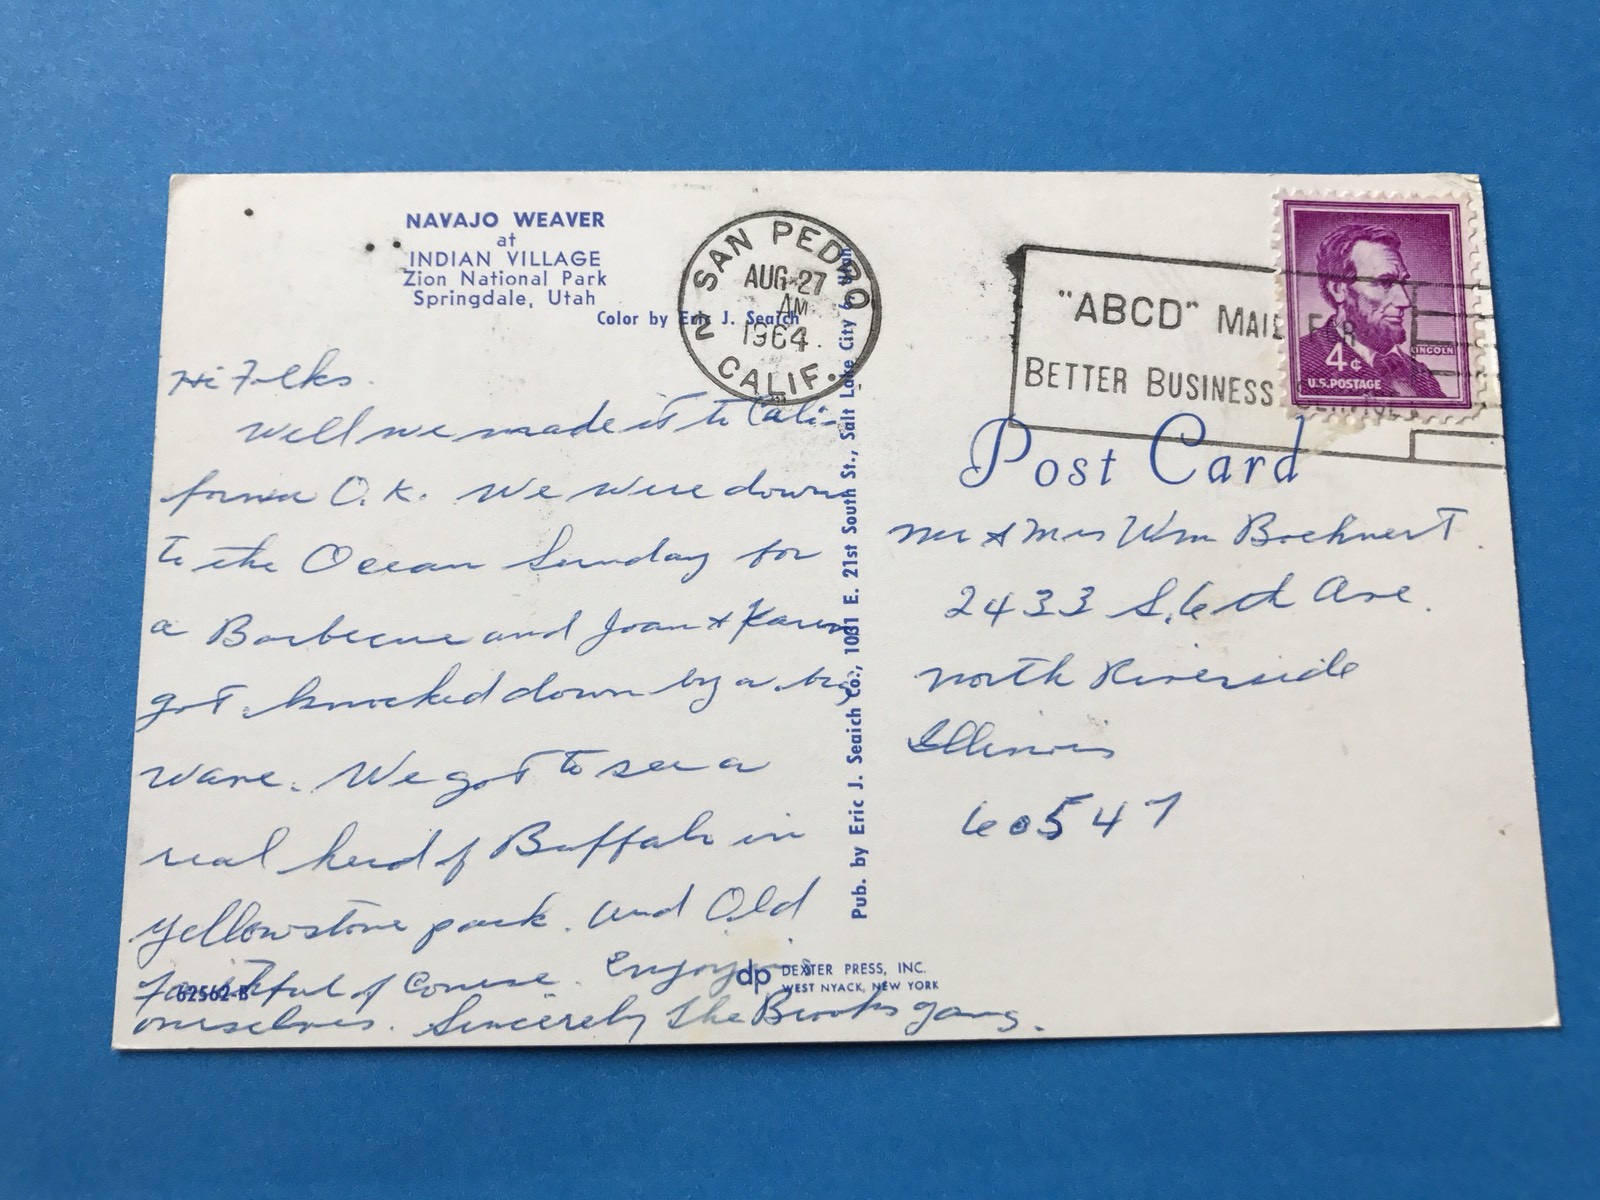 NAVAJO WEAVER
at
INDIAN VILLAGE
Zion National Park
Springdale, Utah
Color by Eric J. Seaich
SAN PEDRO
AUG 27
AM
1964
2 CALIF.
"ABCD" MAIL FOR
BETTER BUSINESS
LINCOLN
4¢
U.S. POSTAGE
Hi Folks.
Well we made it to Cali-
fornia O.K. We were down
to the Ocean Sunday for
a Barbecue and Joan & Karen
got knocked down by a big
wave. We got to see a
real herd of Buffalo in
Yellowstone park. And Old
Faithful of course. Enjoying
ourselves. Sincerely The Brooks gang.
62562-B
Pub. by Eric J. Seaich Co., 1031 E. 21st South St., Salt Lake City 6, Utah
Post Card
Mr & Mrs Wm Boehnert
2433 S. 6th Ave.
North Riverside
Illinois
60547
dp DEXTER PRESS, INC.
WEST NYACK, NEW YORK